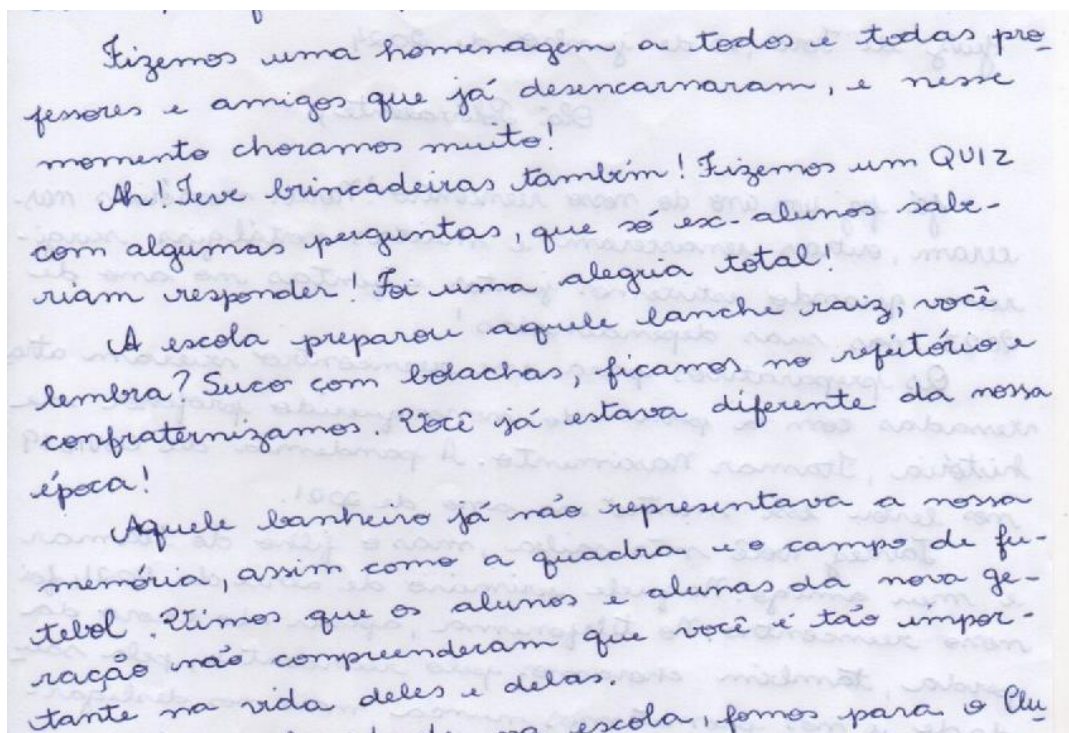 Fizemos uma homenagem a todos e todas pro-
fessores e amigos que já desencarnaram, e nesse
momento choramos muito!
Ah! Teve brincadeiras também! Fizemos um QUIZ
com algumas perguntas, que só ex-alunos sabe-
riam responder! Foi uma alegria total!
A escola preparou aquele lanche raiz, você
lembra? Suco com bolachas, ficamos no refeitório e
confraternizamos. Você já estava diferente da nossa
época!
Aquele banheiro já não representava a nossa
memória, assim como a quadra e o campo de fu-
tebol. Vimos que os alunos e alunas da nova ge-
ração não compreenderam que você é tão impor-
tante na vida deles e delas.
escola, fomos para o Clu